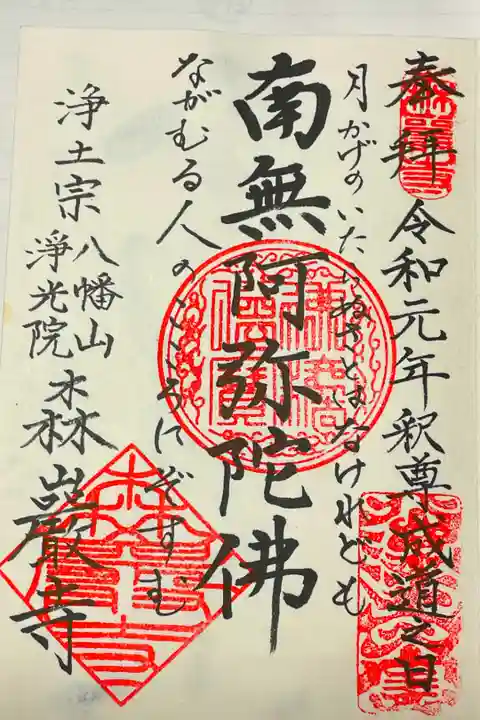 奉拝 令和元年 釈尊成道之日
月かげのいたらぬさとはなけれども
南無阿弥陀佛
ながむる人のこころにぞすむ
浄土宗 八幡山
浄光院
森巌寺